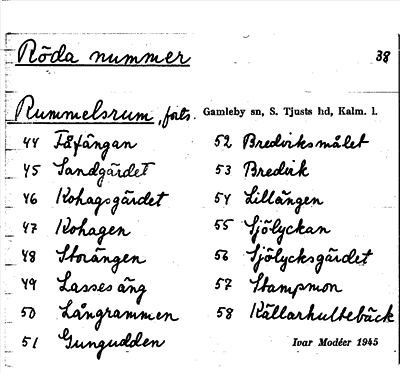 Röda nummer 38
Rummelsrum, forts. Gamleby sn, S. Tjusts hd, Kalm. l.
44 Fåfängan
45 Sandgärdet
46 Kohagsgärdet
47 Kohagen
48 Storängen
49 Lasses äng
50 Långrammen
51 Gungudden
52 Bredviksmålet
53 Bredvik
54 Lillängen
55 Sjölyckan
56 Sjölycksgärdet
57 Stampmon
58 Källarhultebäck
Ivar Modéer 1945